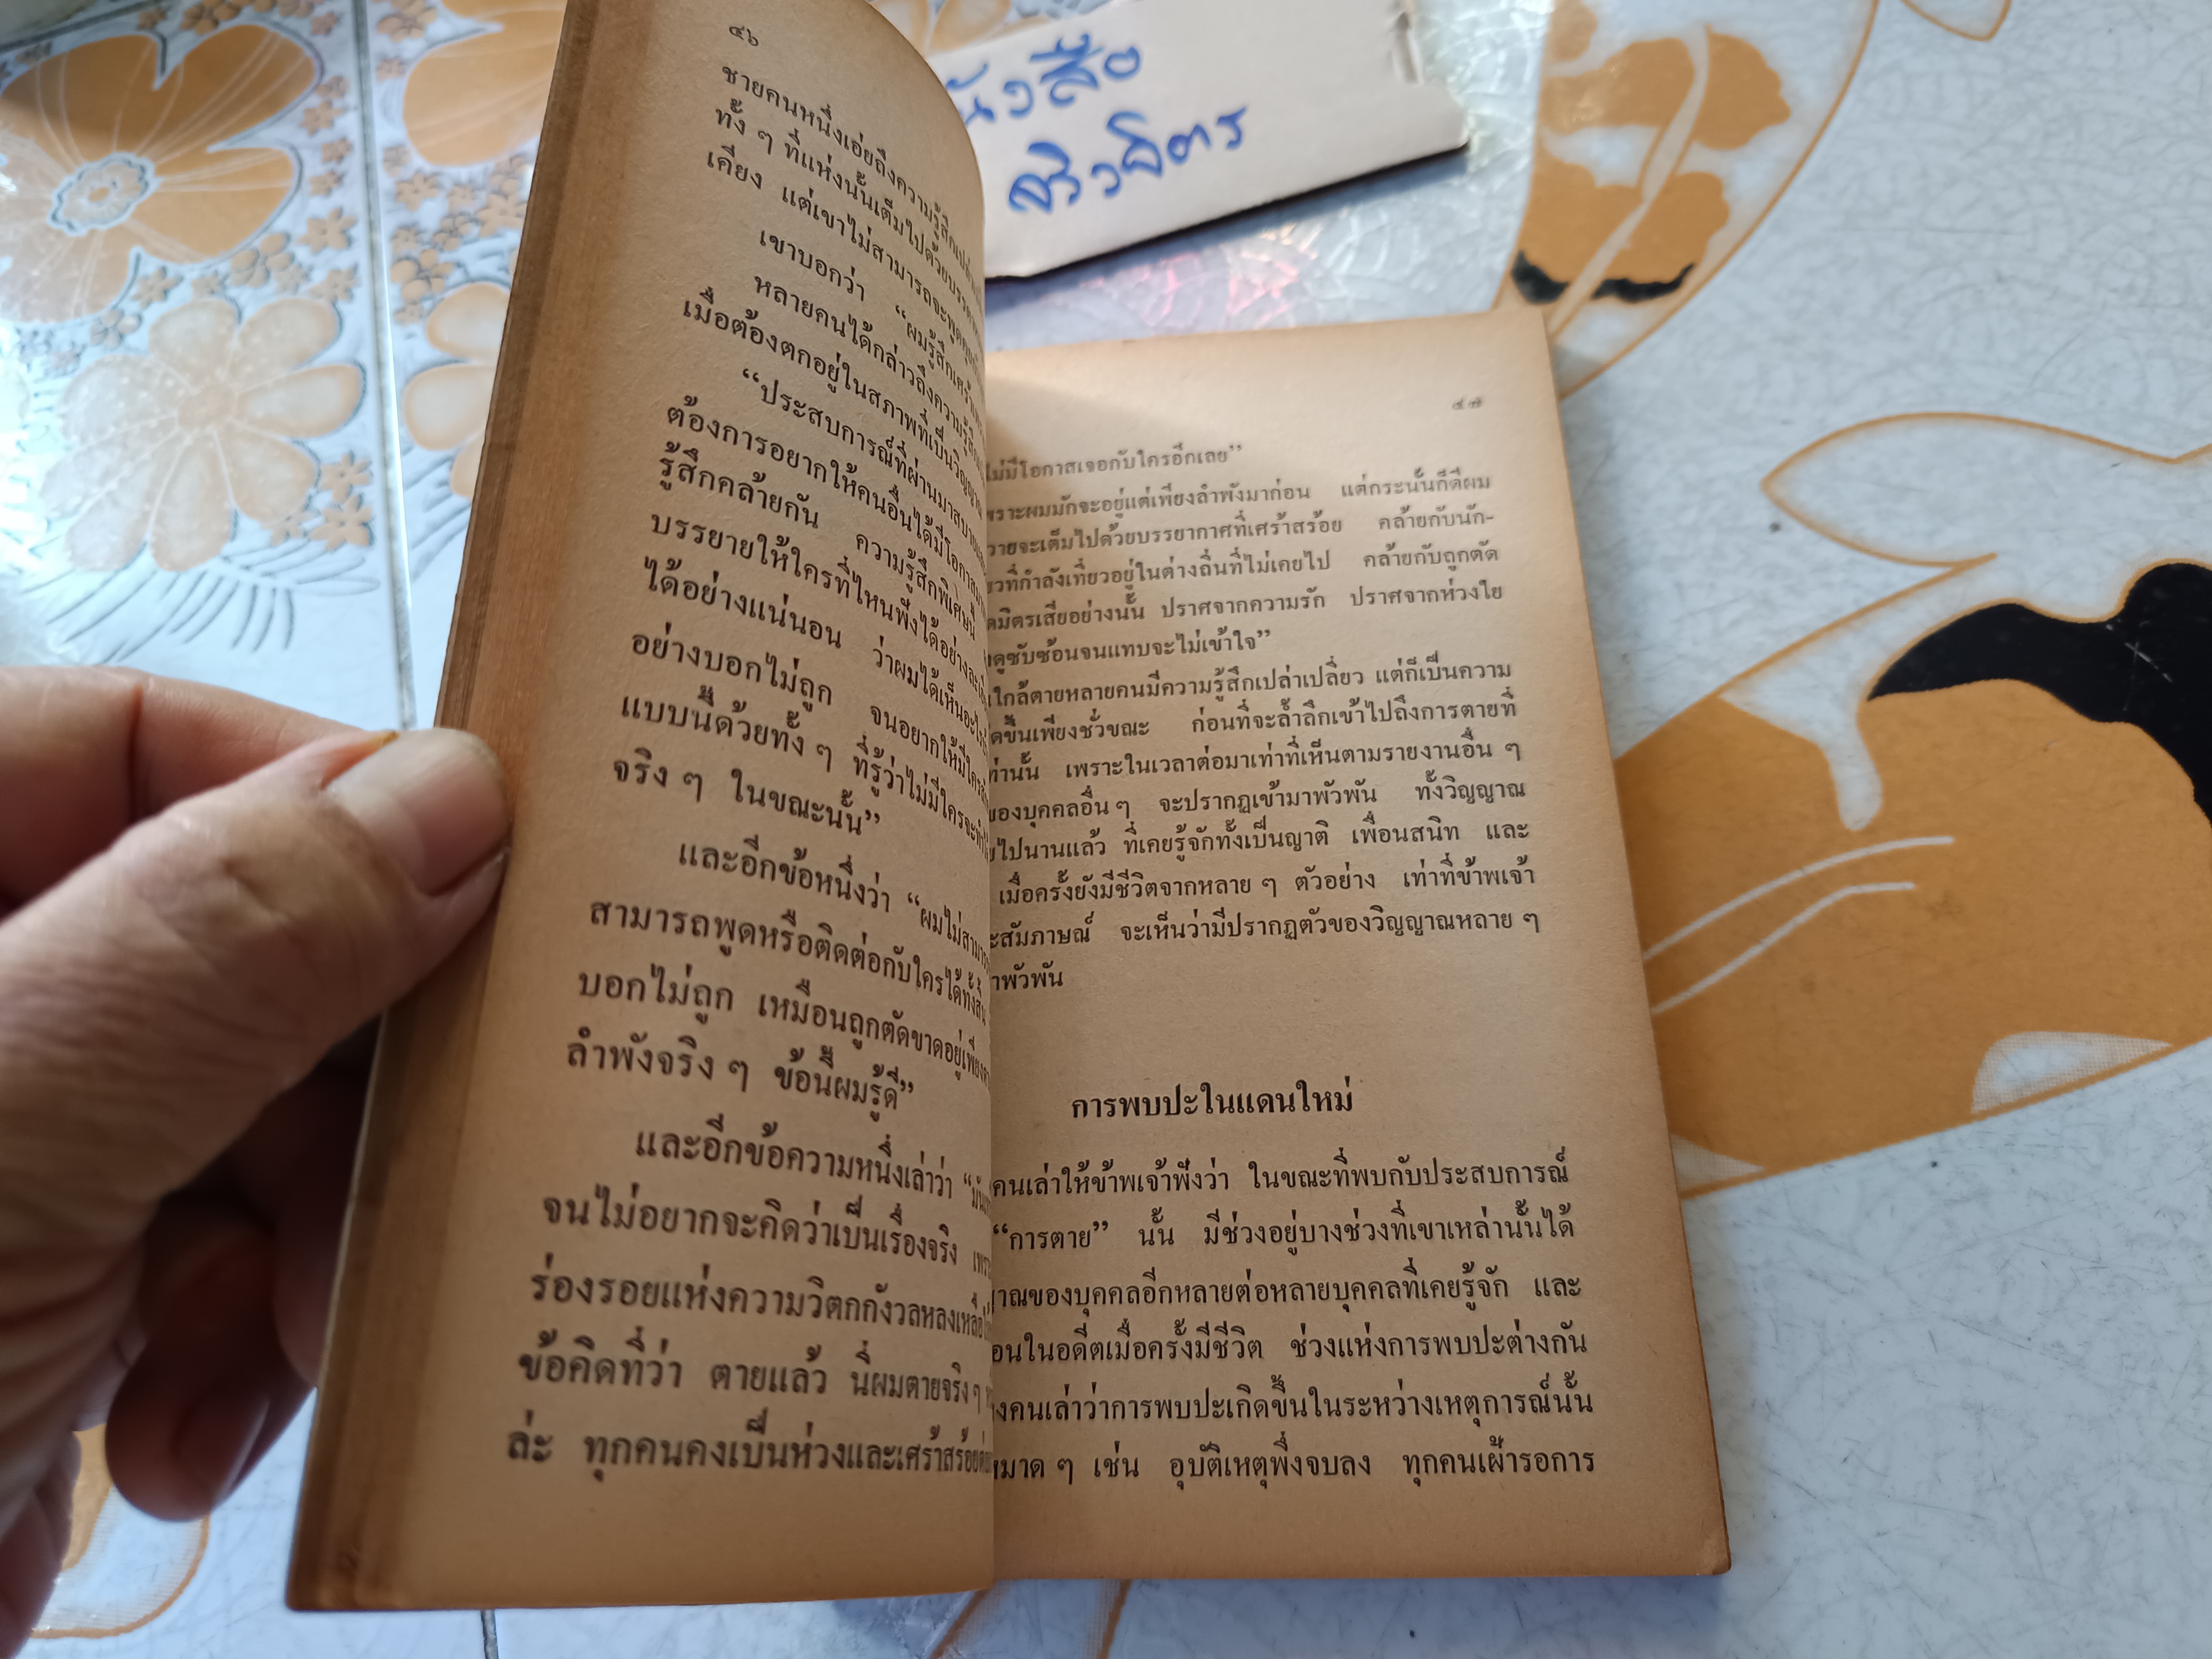 ๔๖
ชายคนหนึ่งเอ่ยถึงความรู้สึก
ทั้ง ๆ ที่แห่งนั้นเต็มไปด้วย
เคียง แต่เขาไม่สามารถจะพูดคุย
เขาบอกว่า “ผมรู้สึก
หลายคนได้กล่าวถึงความรู้สึก
เมื่อต้องตกอยู่ในสภาพที่เป็นวิญญาณ
“ประสบการณ์ที่ผ่านมา
ต้องการอยากให้คนอื่นได้มีโอกาส
รู้สึกคล้ายกัน ความรู้สึกพิเศษนี้
บรรยายให้ใครที่ไหนฟังได้อย่าง
ได้อย่างแน่นอน ว่าผมได้เห็น
อย่างบอกไม่ถูก จนอยากให้มีใคร
แบบนี้ด้วยทั้ง ๆ ที่รู้ว่าไม่มีใครจะ
จริง ๆ ในขณะนั้น”
และอีกข้อหนึ่งว่า “ผมไม่
สามารถพูดหรือติดต่อกับใครได้ทั้งสิ้น
บอกไม่ถูก เหมือนถูกตัดขาดอยู่เพียง
ลำพังจริง ๆ ข้อนี้ผมรู้ดี”
และอีกข้อความหนึ่งเล่าว่า
จนไม่อยากจะคิดว่าเป็นเรื่องจริง
ร่องรอยแห่งความวิตกกังวลหลงเหลือ
ข้อคิดที่ว่า ตายแล้ว นี่ผมตายจริง ๆ
ล่ะ ทุกคนคงเป็นห่วงและเศร้าสร้อย
หนังสือ
จริวจิตร
๔๗
ไม่มีโอกาสเจอกับใครอีกเลย”
เพราะผมมักจะอยู่แต่เพียงลำพังมาก่อน แต่กระนั้นก็ดีผม
จะเต็มไปด้วยบรรยากาศที่เศร้าสร้อย คล้ายกับนัก-
ที่กำลังเที่ยวอยู่ในต่างถิ่นที่ไม่เคยไป คล้ายกับถูกตัด
มิตรเสียอย่างนั้น ปราศจากความรัก ปราศจากห่วงใย
ดูซับซ้อนจนแทบจะไม่เข้าใจ”
ใกล้ตายหลายคนมีความรู้สึกเปล่าเปลี่ยว แต่ก็เป็นความ
ขึ้นเพียงชั่วขณะ ก่อนที่จะล้ำลึกเข้าไปถึงการตายที่
เท่านั้น เพราะในเวลาต่อมาเท่าที่เห็นตามรายงานอื่น ๆ
ของบุคคลอื่น ๆ จะปรากฏเข้ามาพัวพัน ทั้งวิญญาณ
ไปนานแล้ว ที่เคยรู้จักทั้งเป็นญาติ เพื่อนสนิท และ
เมื่อครั้งยังมีชีวิตจากหลาย ๆ ตัวอย่าง เท่าที่ข้าพเจ้า
สัมภาษณ์ จะเห็นว่ามีปรากฏตัวของวิญญาณหลาย ๆ
พัวพัน
การพบปะในแดนใหม่
คนเล่าให้ข้าพเจ้าฟังว่า ในขณะที่พบกับประสบการณ์
“การตาย” นั้น มีช่วงอยู่บางช่วงที่เขาเหล่านั้นได้
ของบุคคลอีกหลายต่อหลายบุคคลที่เคยรู้จัก และ
ในอดีตเมื่อครั้งมีชีวิต ช่วงแห่งการพบปะต่างกัน
คนเล่าว่าการพบปะเกิดขึ้นในระหว่างเหตุการณ์นั้น
หมาด ๆ เช่น อุบัติเหตุพึ่งจบลง ทุกคนเฝ้ารอการ